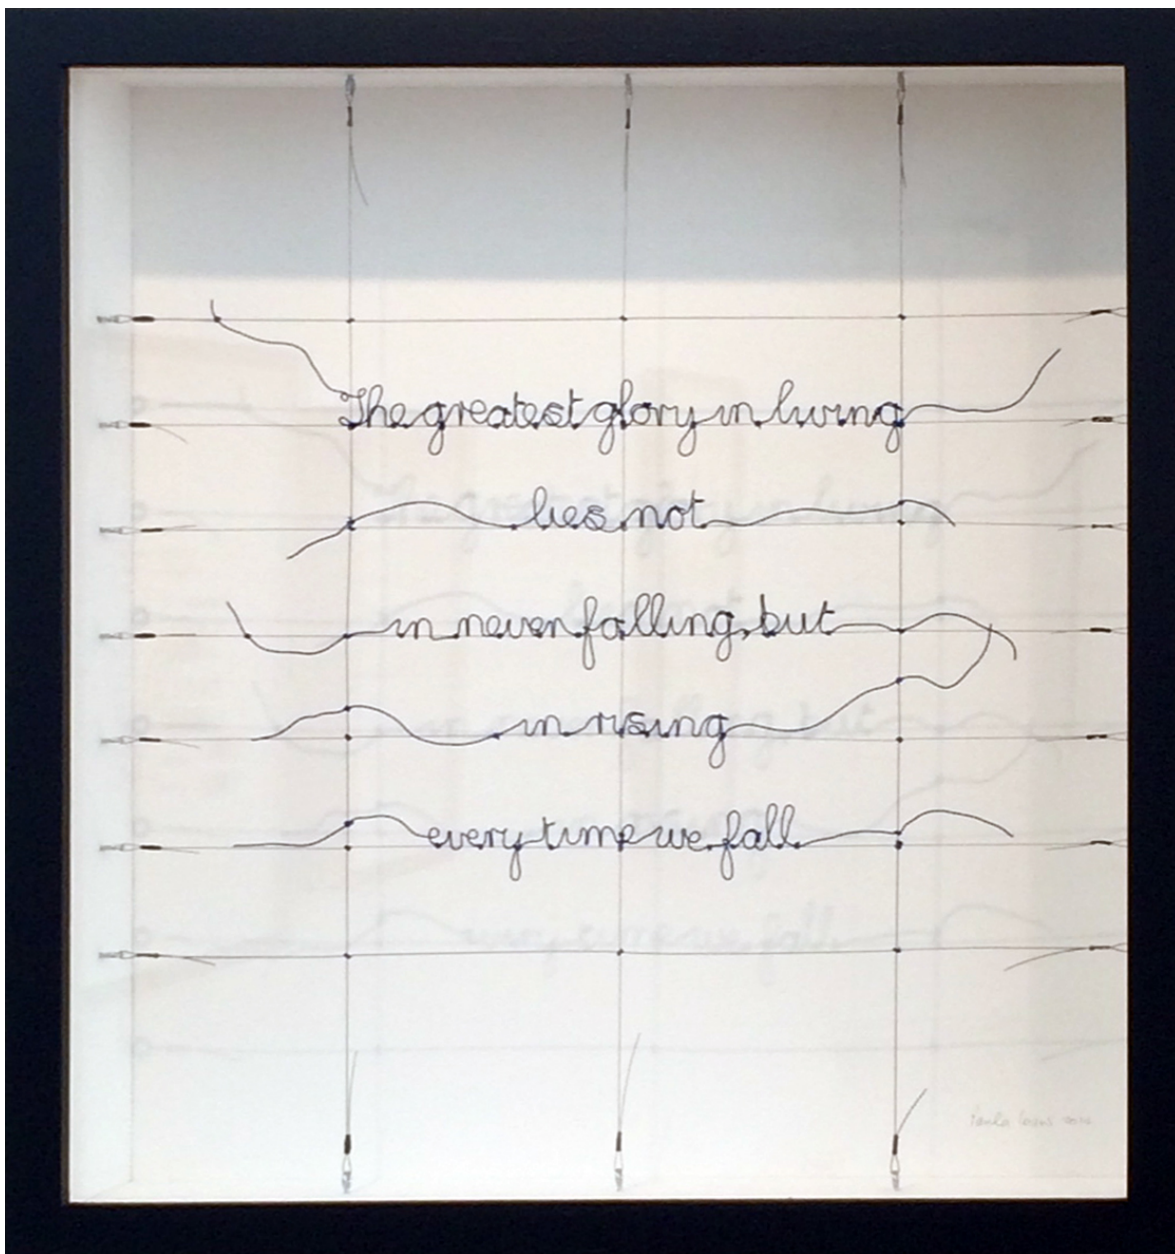 The greatest glory in living
lies not
in never falling, but
in rising
every time we fall